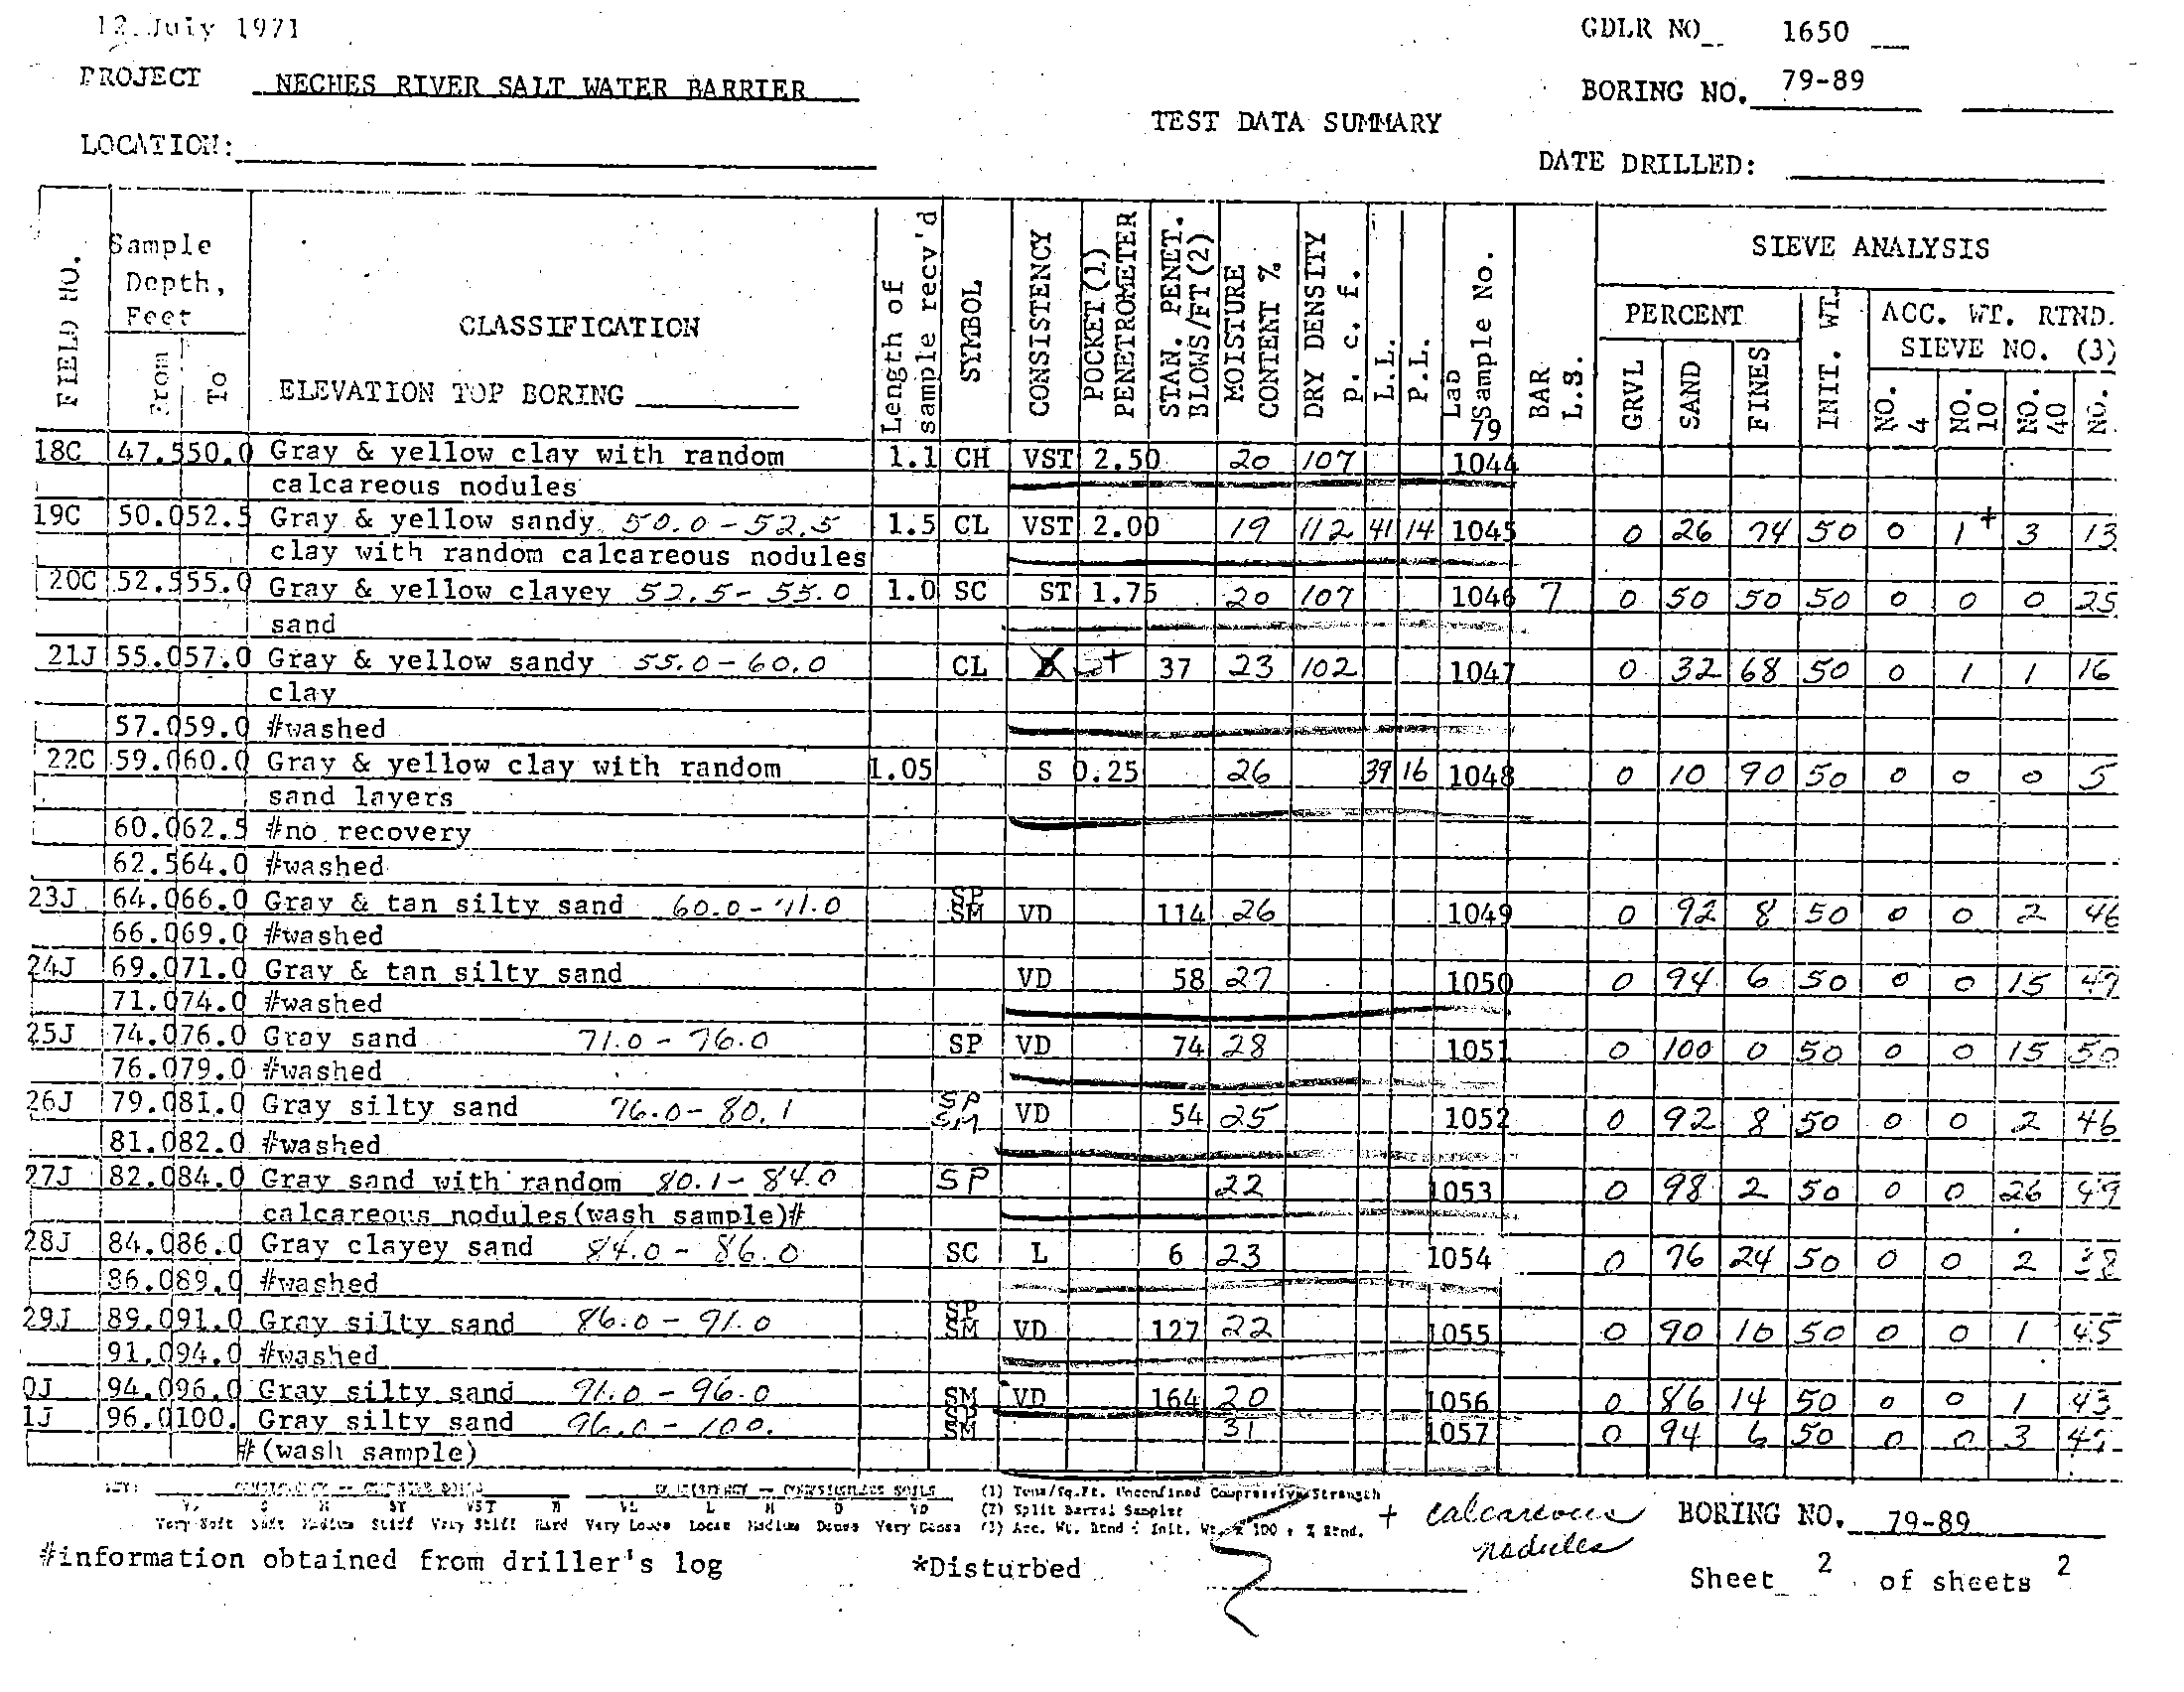 12 July 1971
GDLR NO 1650
PROJECT NECHES RIVER SALT WATER BARRIER
BORING NO. 79-89
TEST DATA SUMMARY
LOCATION:
DATE DRILLED:
FIELD NO.
Sample Depth, Feet
From
To
CLASSIFICATION
ELEVATION TOP BORING
Length of sample recv'd
SYMBOL
CONSISTENCY
POCKET (1) PENETROMETER
STAN. PENET. BLOWS/FT (2)
MOISTURE CONTENT %
DRY DENSITY p. c. f.
L.L.
P.L.
Lab Sample No. 79
BAR L.S.
SIEVE ANALYSIS
PERCENT
GRVL
SAND
FINES
INIT. WT.
ACC. WT. RTND. SIEVE NO. (3)
NO. 4
NO. 10
NO. 40
NO.
18C 47.5 50.0 Gray & yellow clay with random 1.1 CH VST 2.50 20 107 1044
calcareous nodules
19C 50.0 52.5 Gray & yellow sandy 50.0-52.5 1.5 CL VST 2.00 19 112 41 14 1045 0 26 74 50 0 1+ 3 13
clay with random calcareous nodules
20C 52.5 55.0 Gray & yellow clayey 52.5-55.0 1.0 SC ST 1.75 20 107 1046 7 0 50 50 50 0 0 0 25
sand
21J 55.0 57.0 Gray & yellow sandy 55.0-60.0 CL 37 23 102 1047 0 32 68 50 0 1 1 16
clay
57.0 59.0 #washed
22C 59.0 60.0 Gray & yellow clay with random 1.05 S 0.25 26 39 16 1048 0 10 90 50 0 0 0 5
sand layers
60.0 62.5 #no recovery
62.5 64.0 #washed
23J 64.0 66.0 Gray & tan silty sand 60.0-71.0 SP SM VD 114 26 1049 0 92 8 50 0 0 2 46
66.0 69.0 #washed
24J 69.0 71.0 Gray & tan silty sand VD 58 27 1050 0 94 6 50 0 0 15 47
71.0 74.0 #washed
25J 74.0 76.0 Gray sand 71.0-76.0 SP VD 74 28 1051 0 100 0 50 0 0 15 50
76.0 79.0 #washed
26J 79.0 81.0 Gray silty sand 76.0-80.1 SP SM VD 54 25 1052 0 92 8 50 0 0 2 46
81.0 82.0 #washed
27J 82.0 84.0 Gray sand with random 80.1-84.0 SP 22 1053 0 98 2 50 0 0 26 49
calcareous nodules(wash sample)#
28J 84.0 86.0 Gray clayey sand 84.0-86.0 SC L 6 23 1054 0 76 24 50 0 0 2 38
86.0 89.0 #washed
29J 89.0 91.0 Gray silty sand 86.0-91.0 SP SM VD 127 22 1055 0 90 10 50 0 0 1 45
91.0 94.0 #washed
0J 94.0 96.0 Gray silty sand 91.0-96.0 SM VD 164 20 1056 0 86 14 50 0 0 1 43
1J 96.0 100. Gray silty sand 96.0-100. SP SM 31 1057 0 94 6 50 0 0 3 47
#(wash sample)
(1) Tons/Sq.Ft. Unconfined Compressive Strength
VL L M D VD (2) Split Barrel Sampler
Very Soft Soft Medium Stiff Very Stiff Hard Very Loose Loose Medium Dense Very Dense (3) Acc. Wt. Rtnd ÷ Init. Wt. x 100 = % Rtnd.
+ calcareous nodules
BORING NO. 79-89
#information obtained from driller's log
*Disturbed
Sheet 2 of sheets 2